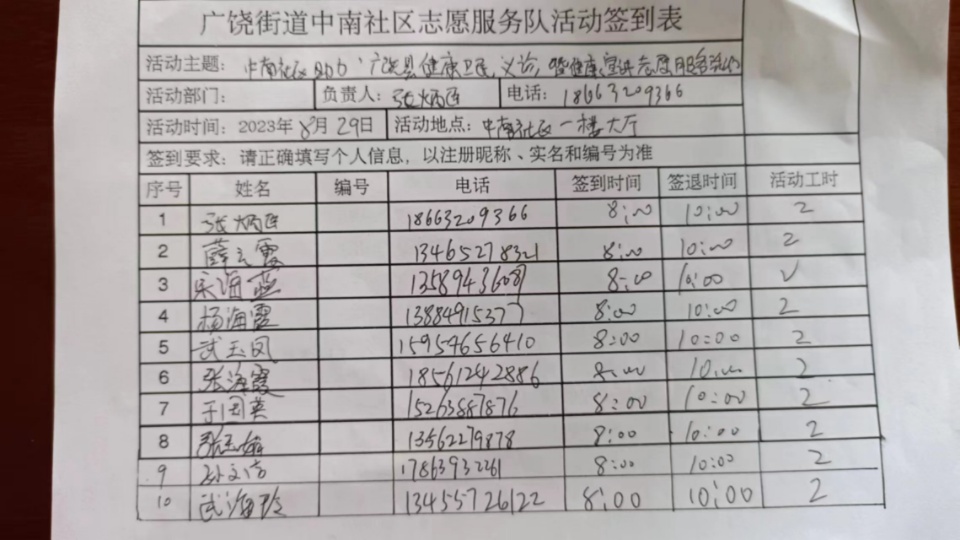 广饶街道中南社区志愿服务队活动签到表
活动主题： 中南社区 广饶县健康卫民，义诊， 健康宣讲志愿服务活动
活动部门： 负责人：张炳臣 电话：18663209366
活动时间：2023年8月29日 活动地点：中南社区一楼大厅
签到要求：请正确填写个人信息，以注册昵称、实名和编号为准
序号 姓名 编号 电话 签到时间 签退时间 活动工时
1 张炳臣 18663209366 8:00 10:00 2
2 薛云霞 13465278321 8:00 10:00 2
3 宋海燕 13589436089 8:00 10:00 2
4 杨海霞 13884915377 8:00 10:00 2
5 武玉凤 15954656410 8:00 10:00 2
6 张海霞 18561242886 8:00 10:00 2
7 于国英 15263887876 8:00 10:00 2
8 13562279878 8:00 10:00 2
9 孙文 17863932261 8:00 10:00 2
10 武海玲 13455726122 8:00 10:00 2